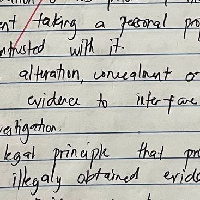 ent taking a personal pro
ntrusted with it.
alteration, concealment o
evidence to interfare
vestigation.
legal principle that pr
illegaly obtained evide